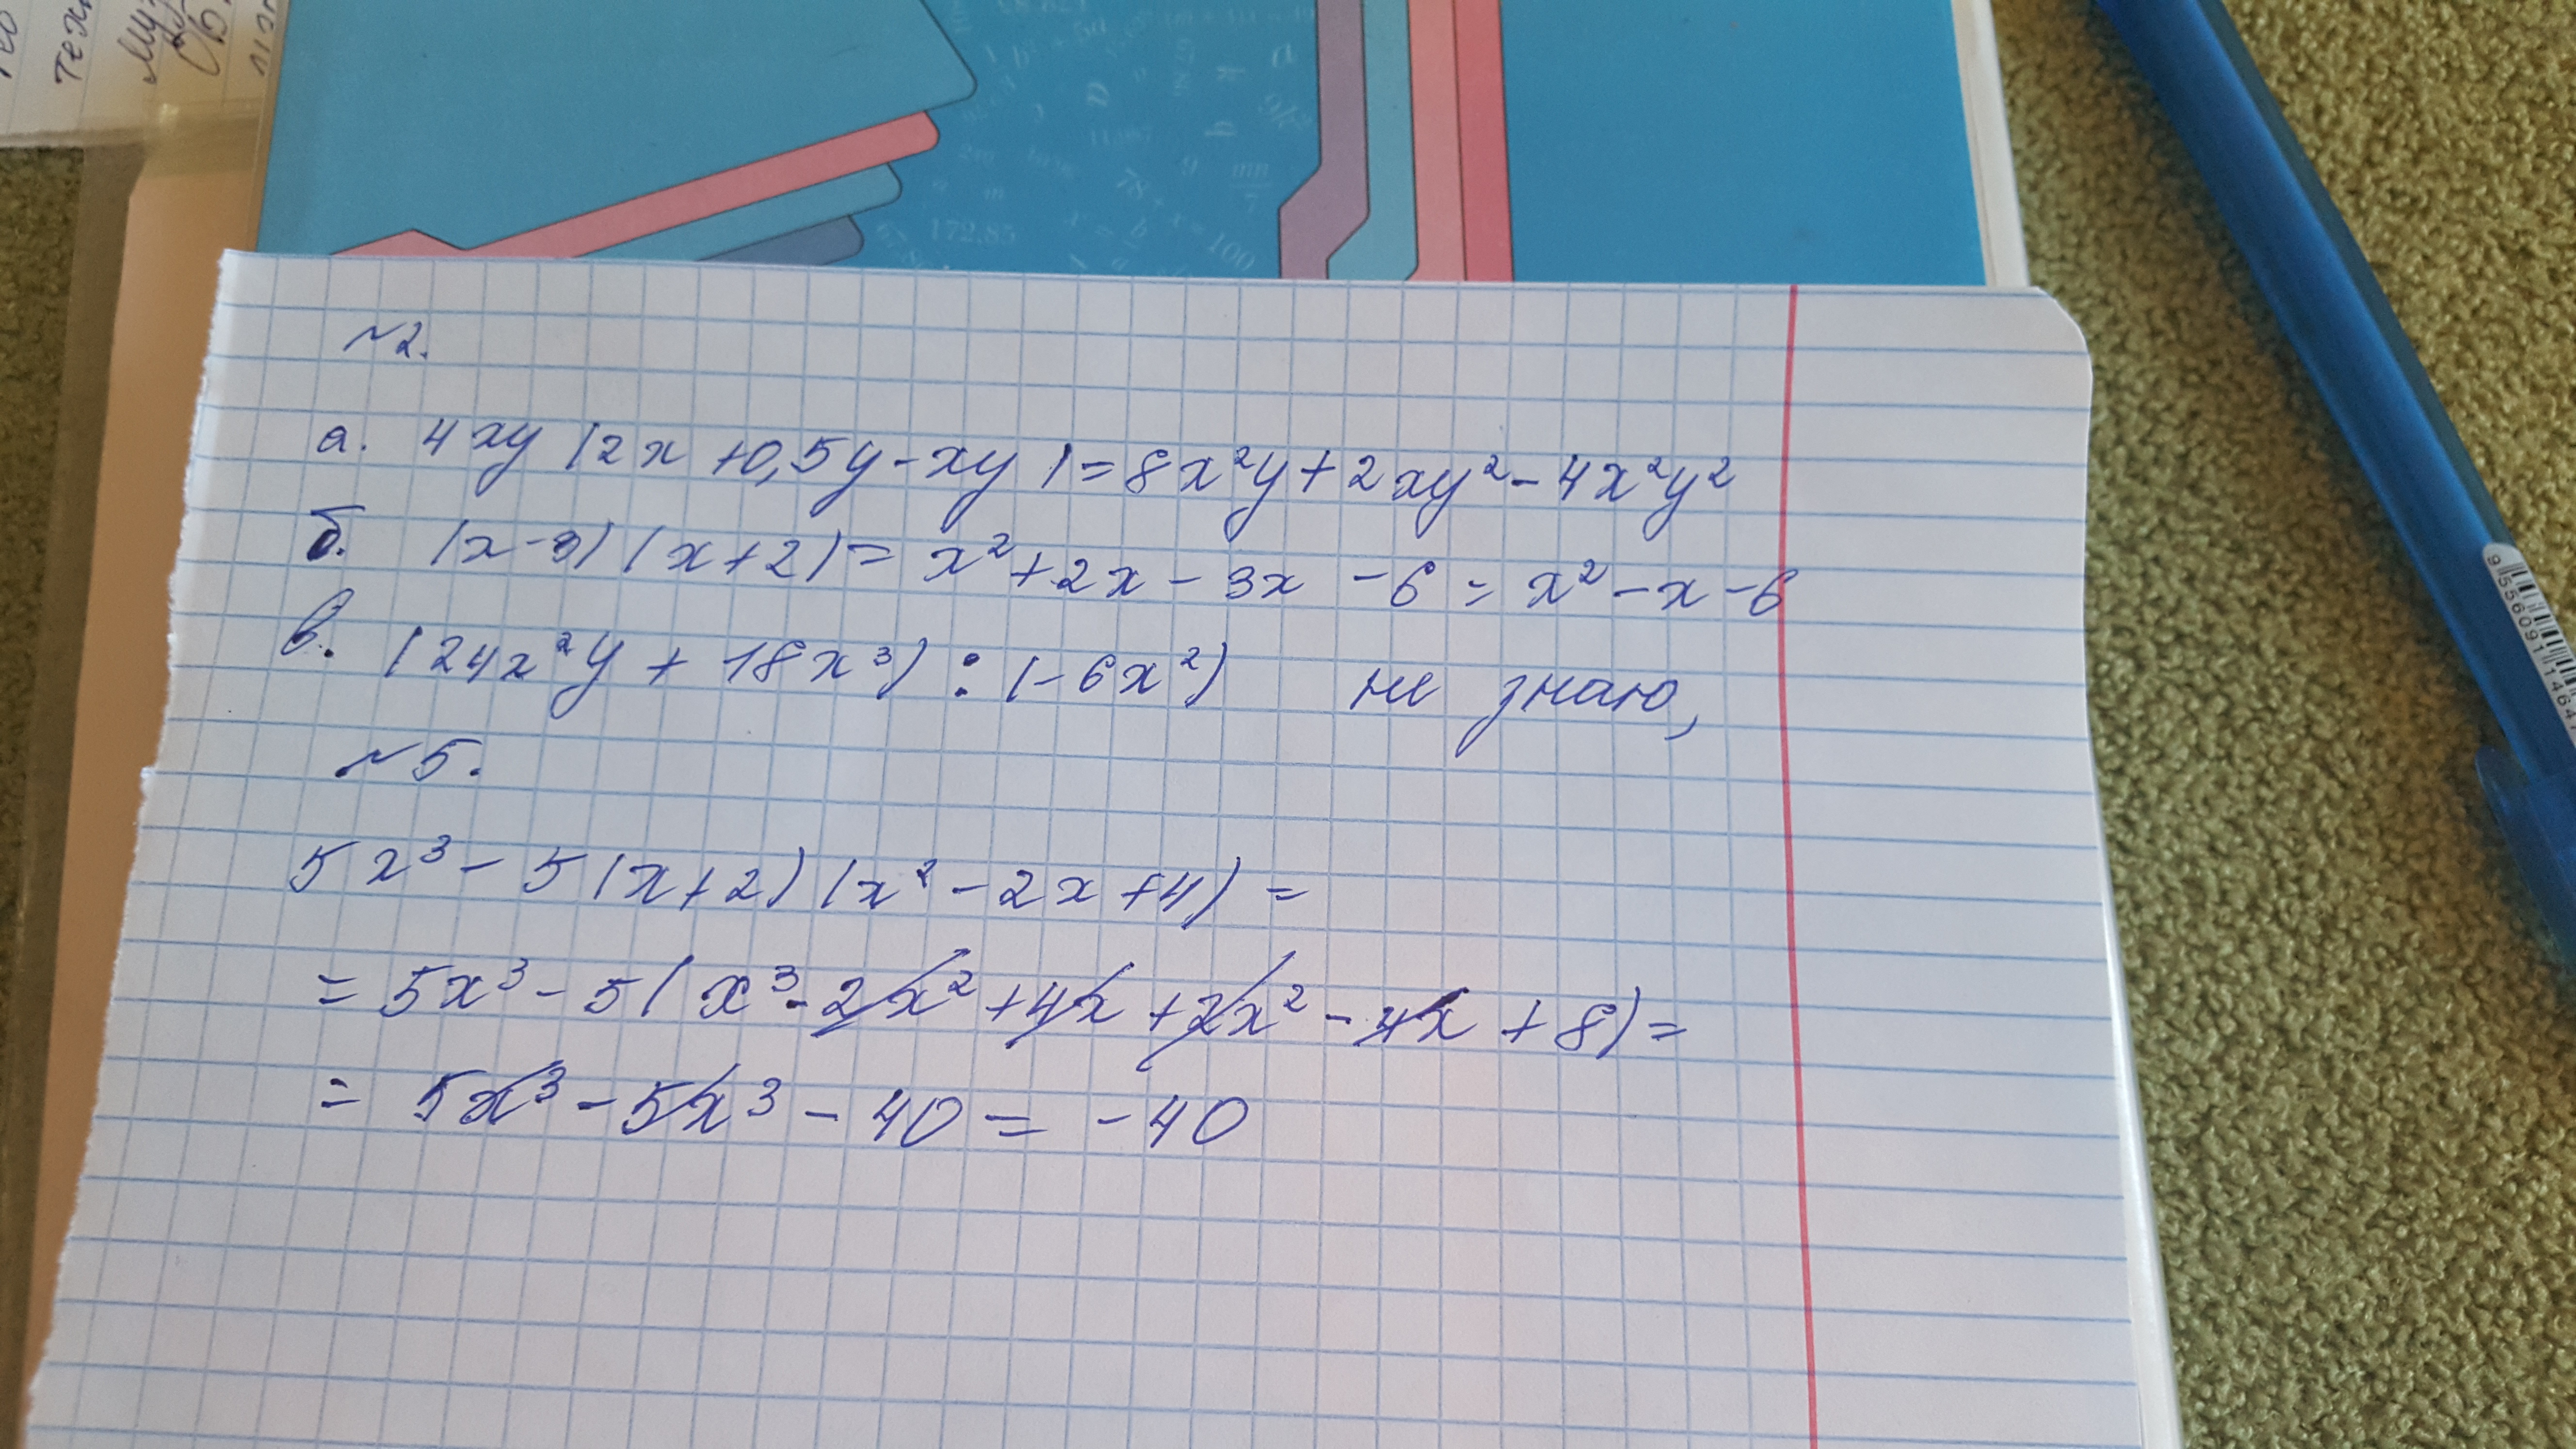 тех.
№2.
а. 4xy (2x + 0,5y - xy) = 8x²y + 2xy² - 4x²y²
б. (x-3)(x+2) = x² + 2x - 3x - 6 = x² - x - 6
в. (24x²y + 18x³) : (-6x²) не знаю,
№5.
5x³ - 5(x+2)(x² - 2x + 4) =
= 5x³ - 5(x³ - 2x² + 4x + 2x² - 4x + 8) =
= 5x³ - 5x³ - 40 = -40
172,85
78 + x = 100